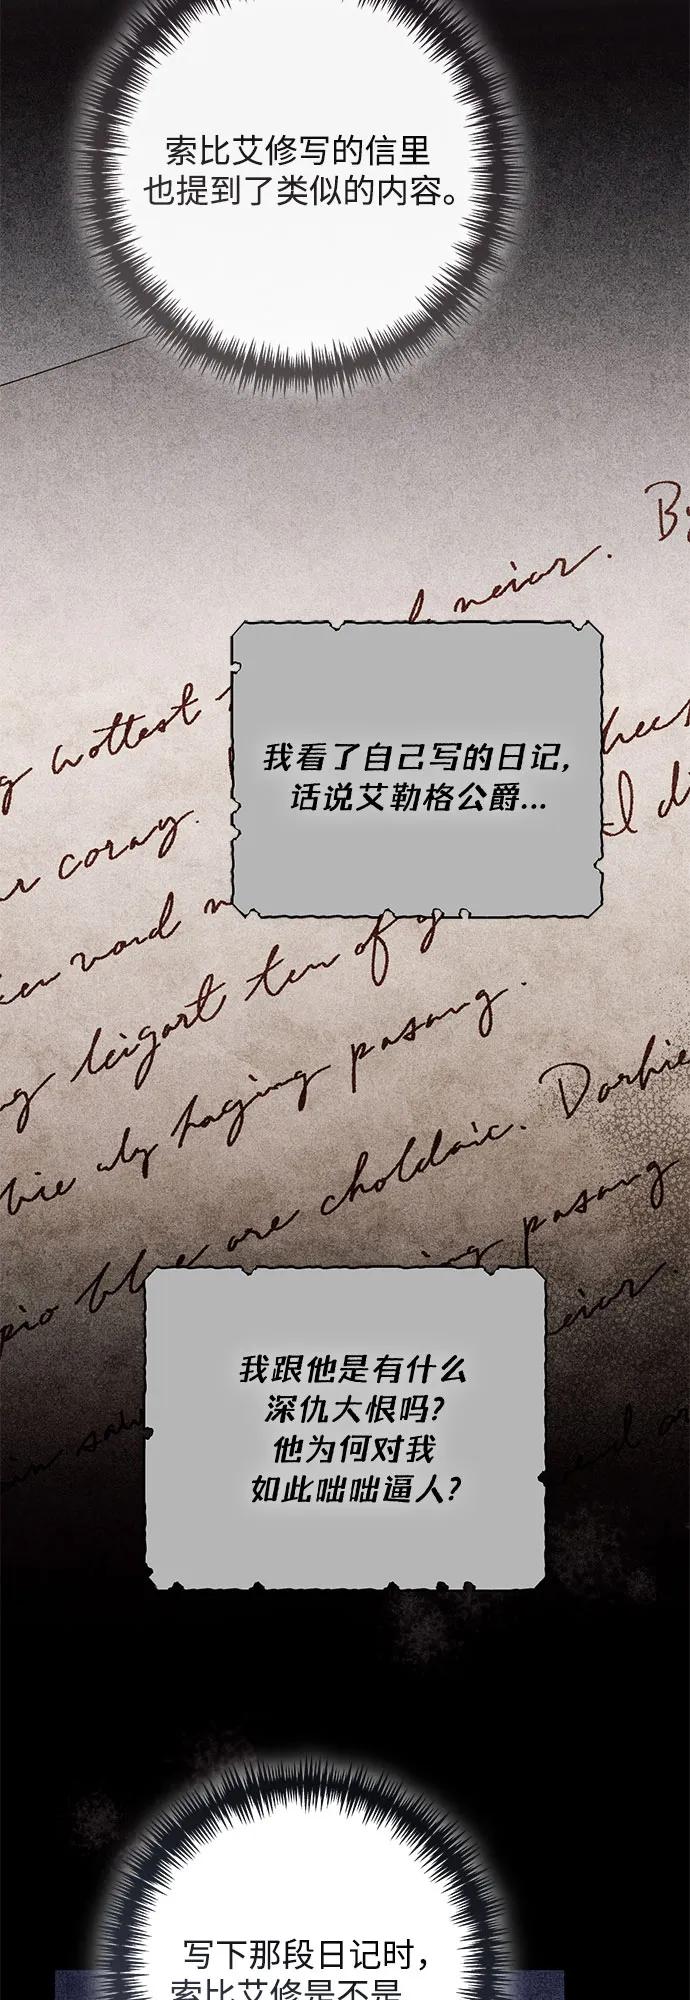 索比艾修写的信里
也提到了类似的内容。
neior. By
hottest
我看了自己写的日记,
话说艾勒格公爵...
coray.
I d
word
leigart ten of y
haging pasang.
are choldaic. Darbie
pasang
我跟他是有什么
深仇大恨吗?
他为何对我
如此咄咄逼人?
写下那段日记时,
索比艾修是不是